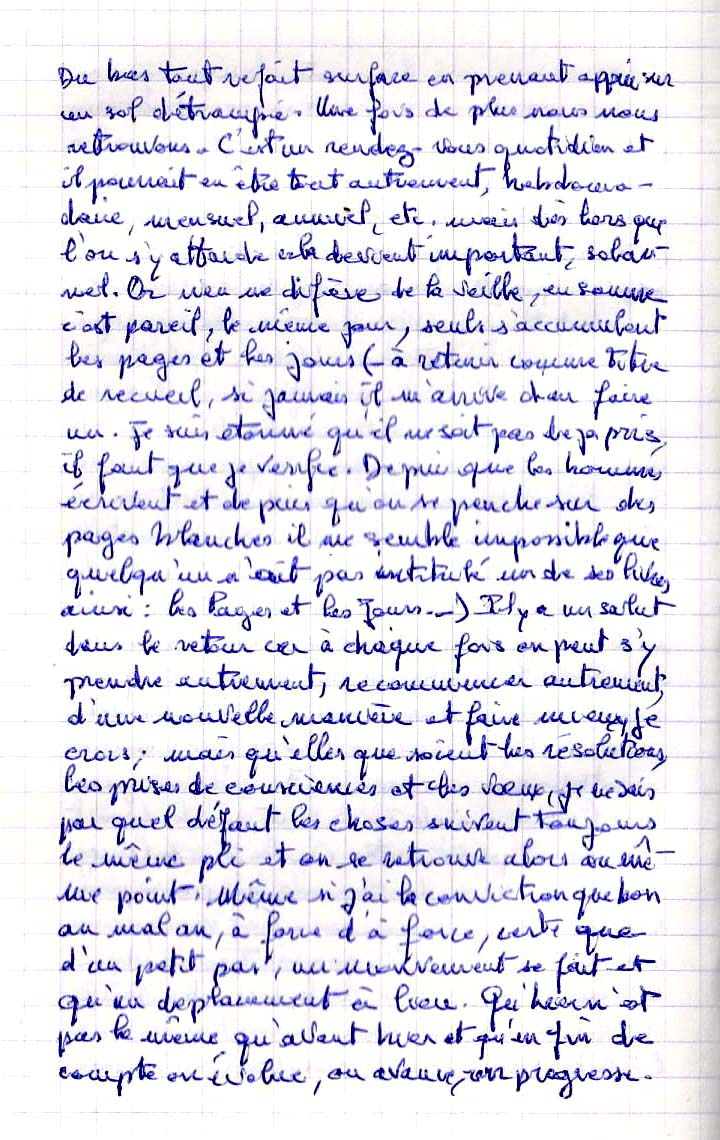 Du bas tout refait surface en prenant appui sur
un sol détrempé. Une fois de plus nous nous
retrouvons. C'est un rendez-vous quotidien et
il pourrait en être tout autrement, hebdoma-
daire, mensuel, annuel, etc. mais dès lors que
l'on s'y attarde cela devient important, solen-
nel. Or rien ne difère de la veille, en somme
c'est pareil, le même jour, seuls s'accumulent
les pages et les jours (- à retenir comme titre
de recueil, si jamais il m'arrive d'en faire
un. Je suis étonné qu'il ne soit pas deja pris,
il faut que je verifie. Depuis que les hommes
écrivent et depuis qu'on se penche sur des
pages blanches il me semble impossible que
quelqu'un n'ait pas intitulé un de ses livres
ainsi : les Pages et les Jours...) Il y a un salut
dans le retour car à chaque fois on peut s'y
prendre autrement, recommencer autrement,
d'une nouvelle manière et faire mieux je
crois; mais qu'elles que soient les résolutions,
les prises de consciences et les voeux, je ne sais
par quel défaut les choses suivent toujours
le même pli et on se retrouve alors au mê-
me point. Même si j'ai la conviction que bon
an mal an, à force d'à force, certe que
d'un petit pas, un mouvement se fait et
qu'un deplacement à lieu. Qu'hier n'est
pas le même qu'avant hier et qu'en fin de
compte on évolue, on avance, on progresse.